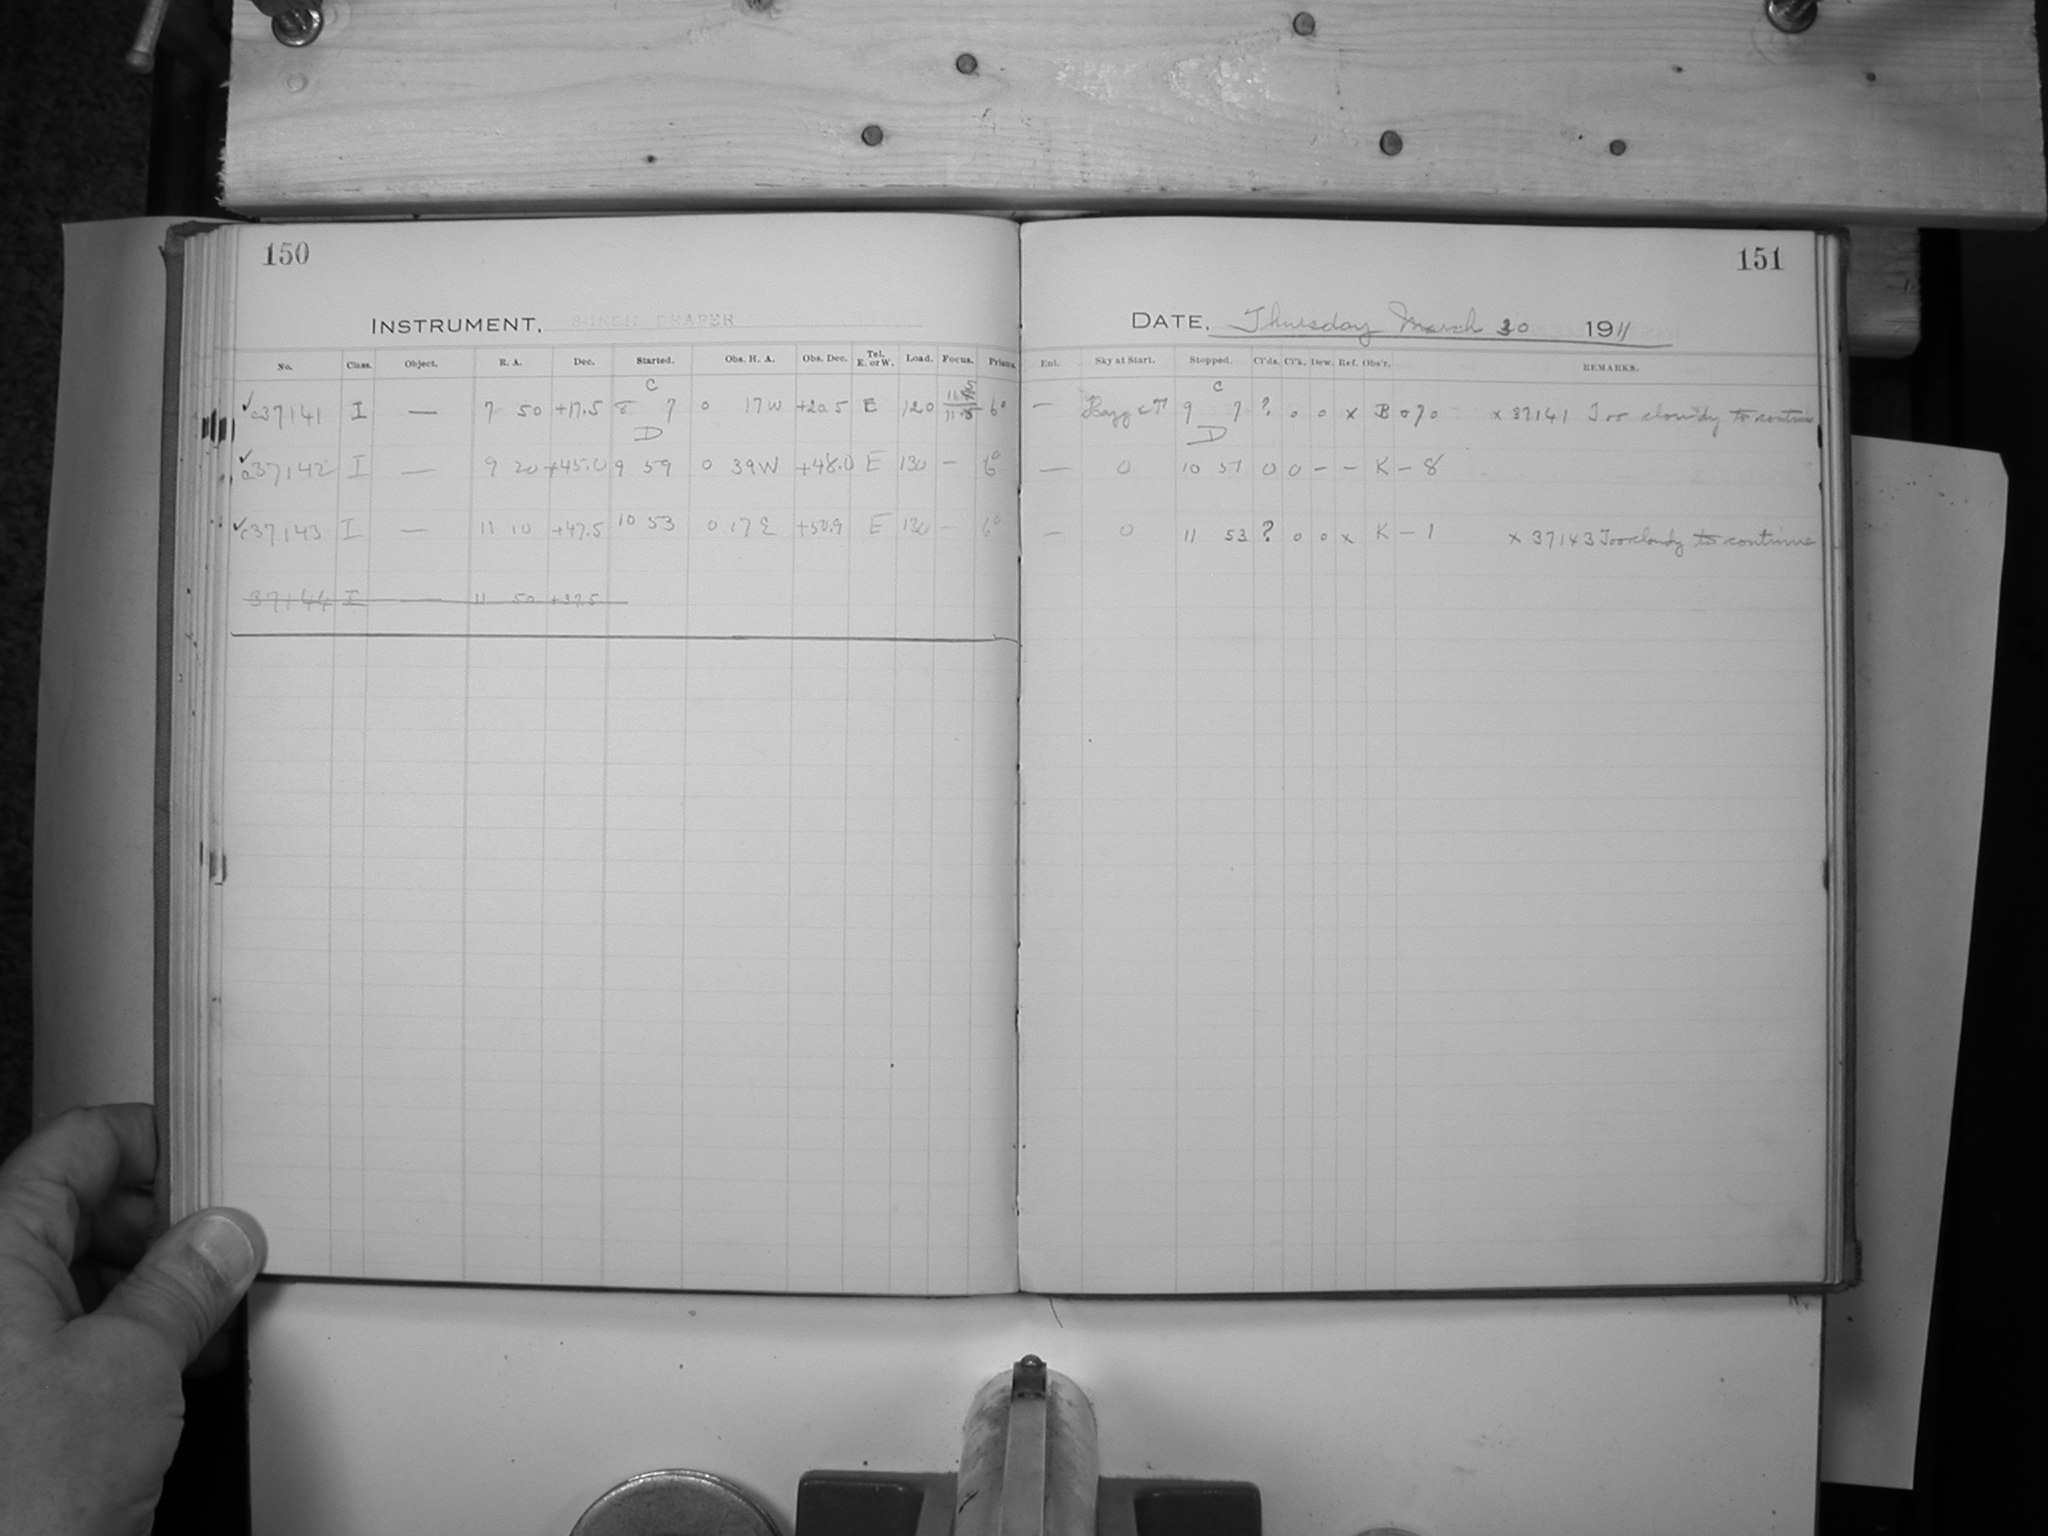 150
INSTRUMENT, 8-INCH DRAPER
No. Class. Object. R. A. Dec. Started. Obs. H. A. Obs. Dec. Tel. E. or W. Load. Focus. Prisms.
C
✓ c37141 I — 7 50 +17.5 8 7 0 17W +20.5 E 120 11.5 6°
D
✓ c37142 I — 9 20 +45.0 9 59 0 39W +48.0 E 130 — 6°
✓ c37143 I — 11 10 +47.5 10 53 0 17 E +50.9 E 130 — 6°
37144 I — 11 50 +37.5
151
DATE, Thursday March 30 1911
Enl. Sky at Start. Stopped. Cl'ds. Cl'k. Dew. Ref. Obs'r. REMARKS.
C
— Hazy & 9 7 ? 0 0 x B x 37141 Too cloudy to continue
D
— 0 10 57 0 0 – – K – 8
— 0 11 53 ? 0 0 x K – 1 x 37143 Too cloudy to continue